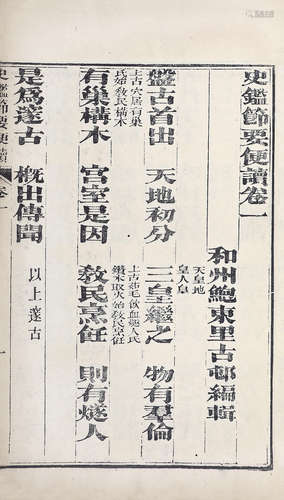 史鑑節要便讀卷一
和州鮑東里古邨編輯
盤古首出 天地初分 三皇繼之 天皇地皇人皇 物有羣倫
上古穴居有巢氏始教民構木
有巢構木 宮室是因 上古茹毛飲血燧人氏鑽木取火始教民烹飪 教民烹飪 則有燧人
是爲邃古 概出傳聞 以上邃古
史鑑節要便讀 卷一
一